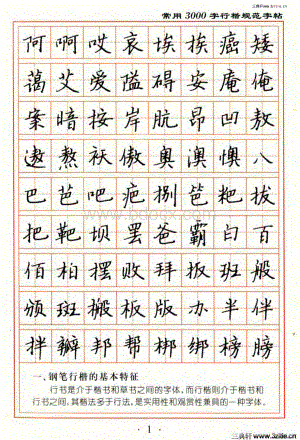 常用3000字行楷规范字帖
阿啊哎哀埃挨癌矮
蔼艾爱隘碍安庵俺
案暗按岸肮昂凹敖
遨熬袄傲奥澳懊八
巴芭吧疤捌笆粑拔
把靶坝罢爸霸白百
佰柏摆败拜扳班般
颁斑搬板版办半伴
拌瓣邦帮梆榜绑棒
一、钢笔行楷的基本特征
行书是介于楷书和草书之间的字体，而行楷则介于楷书和
行书之间，其楷法多于行法，是实用性和观赏性兼具的一种字体。
· 1 ·
三典轩 www.3zitie.cn